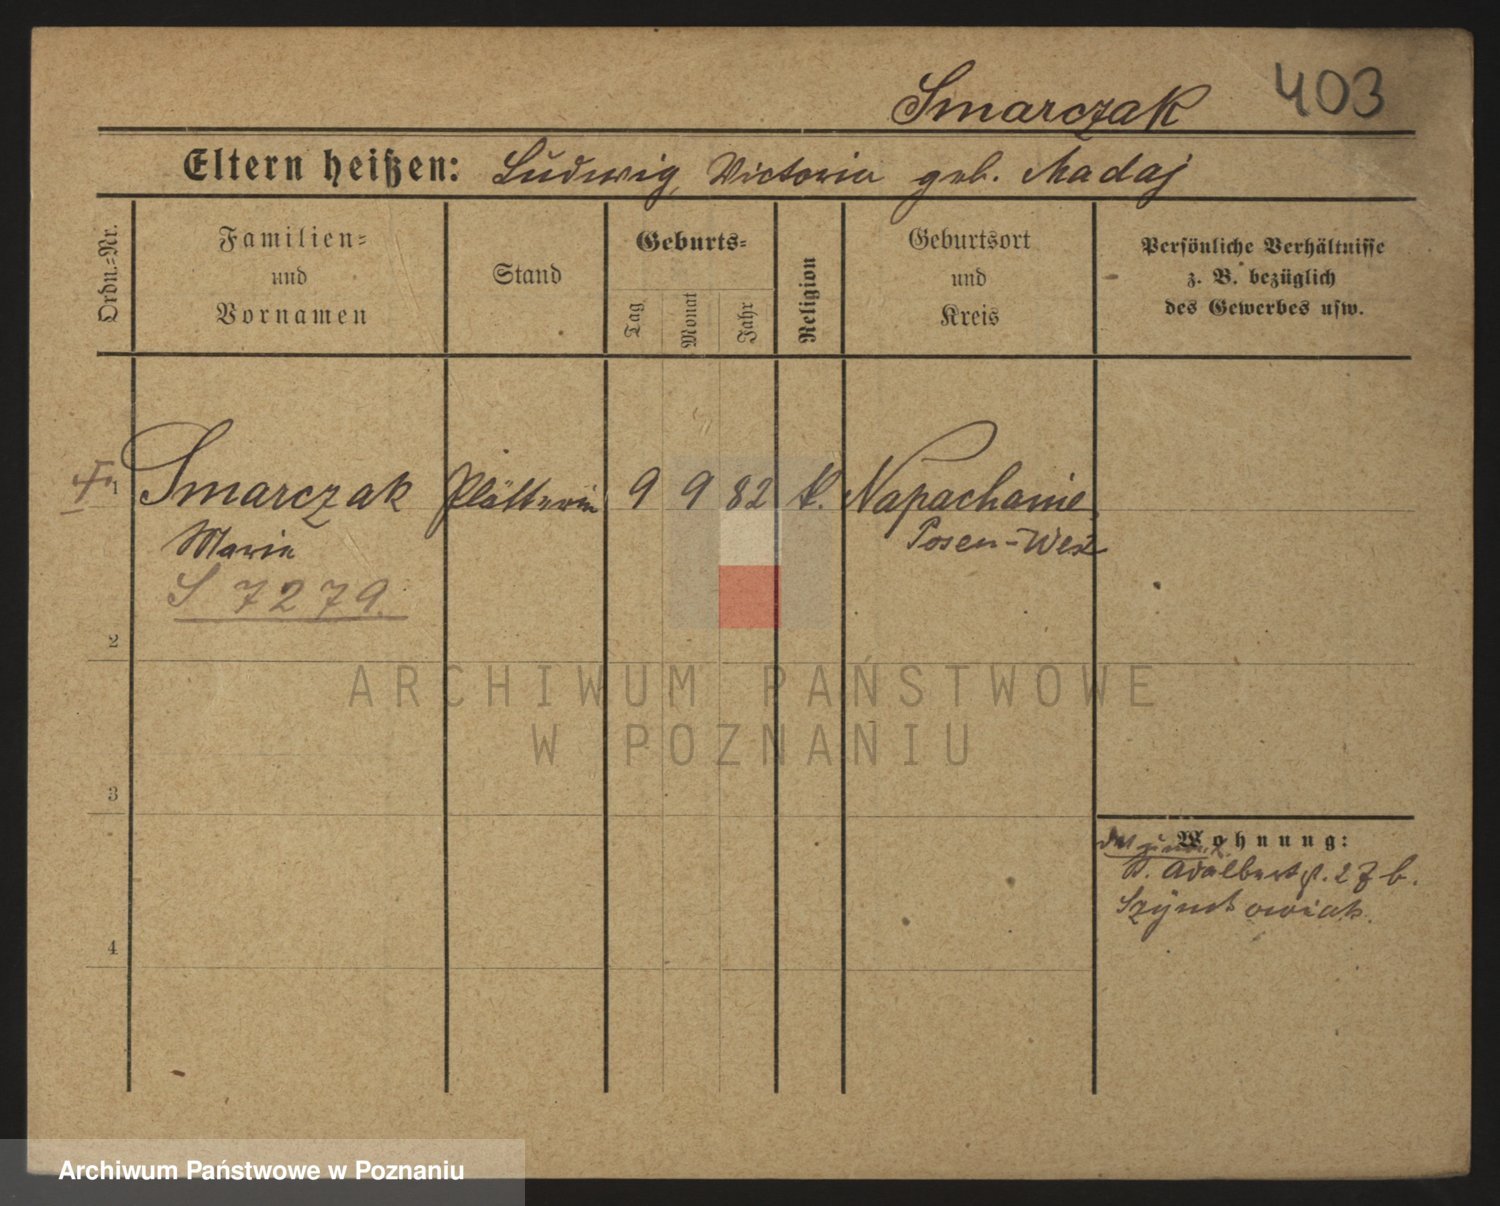 Smarczak 403
Eltern heißen: Ludwig, Victoria geb. Madaj
Ordn.-Nr.
Familien-
und
Vornamen
Stand
Geburts-
Tag
Monat
Jahr
Religion
Geburtsort
und
Kreis
Persönliche Verhältnisse
z. B. bezüglich
des Gewerbes usw.
1 Smarczak Plätterin 9 9 82 k. Napachanie
Marie Posen-West
S 7279.
2
3
4
Wohnung:
St. Adalbertst. 27 b.
Szymkowiak.
ARCHIWUM PAŃSTWOWE
W POZNANIU
Archiwum Państwowe w Poznaniu